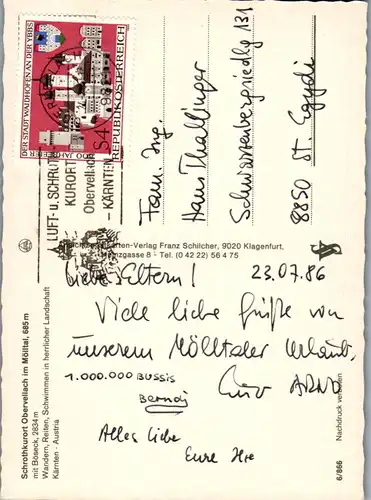 Schrothkurort Obervellach im Mölltal, 685 m
mit Böseck, 2834 m
Wandern, Reiten, Schwimmen in herrlicher Landschaft
Kärnten - Austria
Liebe Eltern! 23.07.86
Viele liebe Grüße von
unserem Mölltaler Urlaub,
Euer ARNO
1.000.000 BUSSIS
Berndi
Alles Liebe
Eure
DER STADT WAIDHOFEN AN DER YBBS
800 JAHRFEIER
REPUBLIK ÖSTERREICH
S4
LUFT- u. SCHROTH
KURORT
Obervellach
- KÄRNTEN
-Verlag Franz Schilcher, 9020 Klagenfurt,
gasse 8 - Tel. (0 42 22) 56 4 75
Fam. Ing.
Hans Thallinger
Schwarzenbergsiedlg 131
8850 St. Egydi
6/866
Nachdruck verboten